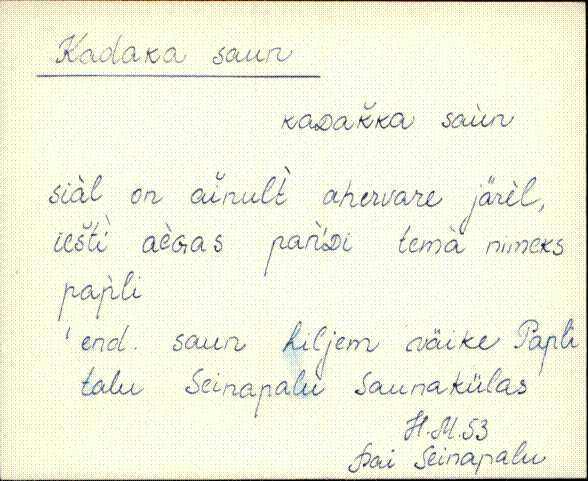 Kadaka saun
kaDaǩka saùn
siàl on aĭnult̀ ahervare järèl,
iešt̀i aèGas pańDi temà nimeks
pap̀li
'end. saun hiljem väike Papli
talu Seinapalu Saunakülas
H.M.53
Seinapalu